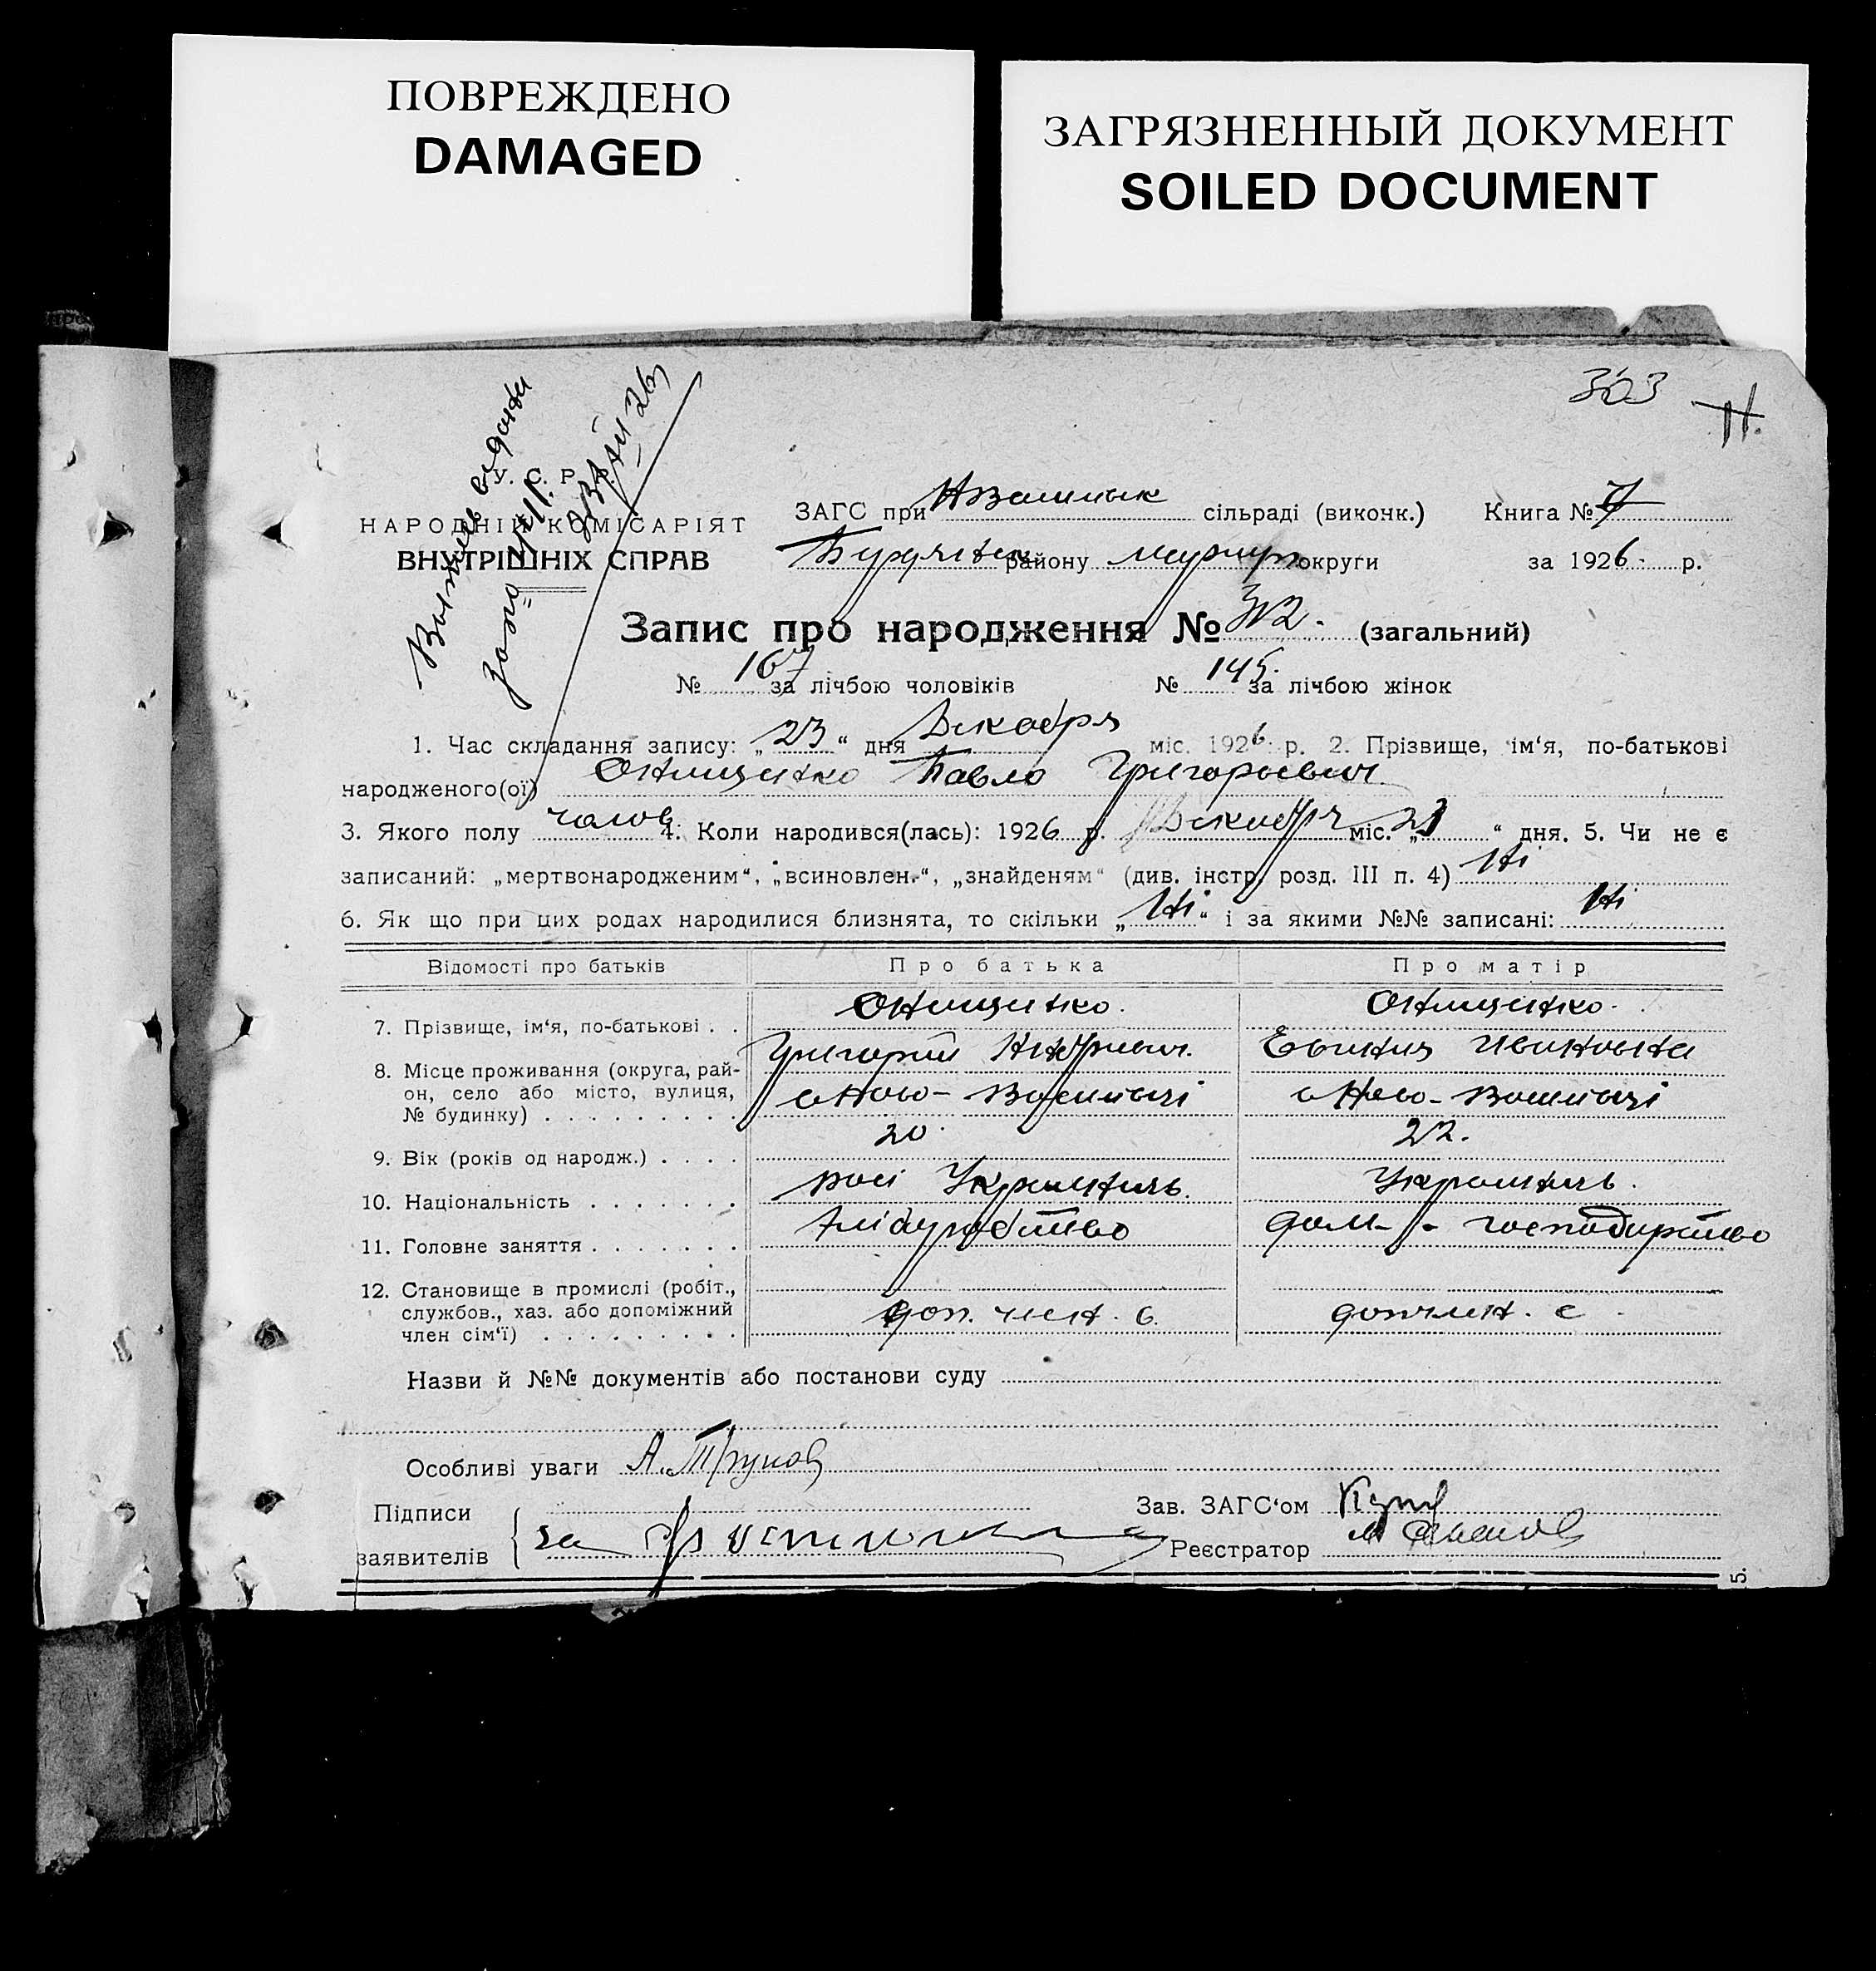 ПОВРЕЖДЕНО
DAMAGED
ЗАГРЯЗНЕННЫЙ ДОКУМЕНТ
SOILED DOCUMENT
303
11.
У. С. Р. Р.
НАРОДНІЙ КОМІСАРІЯТ
ВНУТРІШНІХ СПРАВ
ЗАГС при сільраді (виконк.) Книга № 7
району округи за 1926 р.
Запис про народження № 312. (загальний)
№ 167 за лічбою чоловіків № 145. за лічбою жінок
1. Час складання запису: „23“ дня Декабря міс. 1926 р. 2. Прізвище, ім‘я, по-батькові
народженого(ої) Онищенко Павло Григорьевич
3. Якого полу чолов 4. Коли народився(лась): 1926 р. Декабря міс. „23“ дня. 5. Чи не є
записаний: „мертвонародженим“, „всиновлен.“, „знайденям“ (див. інстр. розд. III п. 4) Ні
6. Як що при цих родах народилися близнята, то скільки „Ні“ і за якими №№ записані: Ні
Відомості про батьків Про батька Про матір
7. Прізвище, ім‘я, по-батькові . . Онищенко. Онищенко.
Григорий Ивановна
8. Місце проживання (округа, рай-
он, село або місто, вулиця,
№ будинку) . . . . . . . . . с Ново- с Ново-
9. Вік (років од народж.) . . . . 20. 22.
10. Національність . . . . . . . Українець. Українець.
11. Головне заняття . . . . . . . Хліборобство дом- господарство
12. Становище в промислі (робіт.,
службов., хаз. або допоміжний
член сім‘ї) . . . . . . . . . доп. член. с. допчлен. с
Назви й №№ документів або постанови суду
Особливі уваги А. Трунов
Підписи
заявителів за
Зав. ЗАГС‘ом
Реєстратор
5.